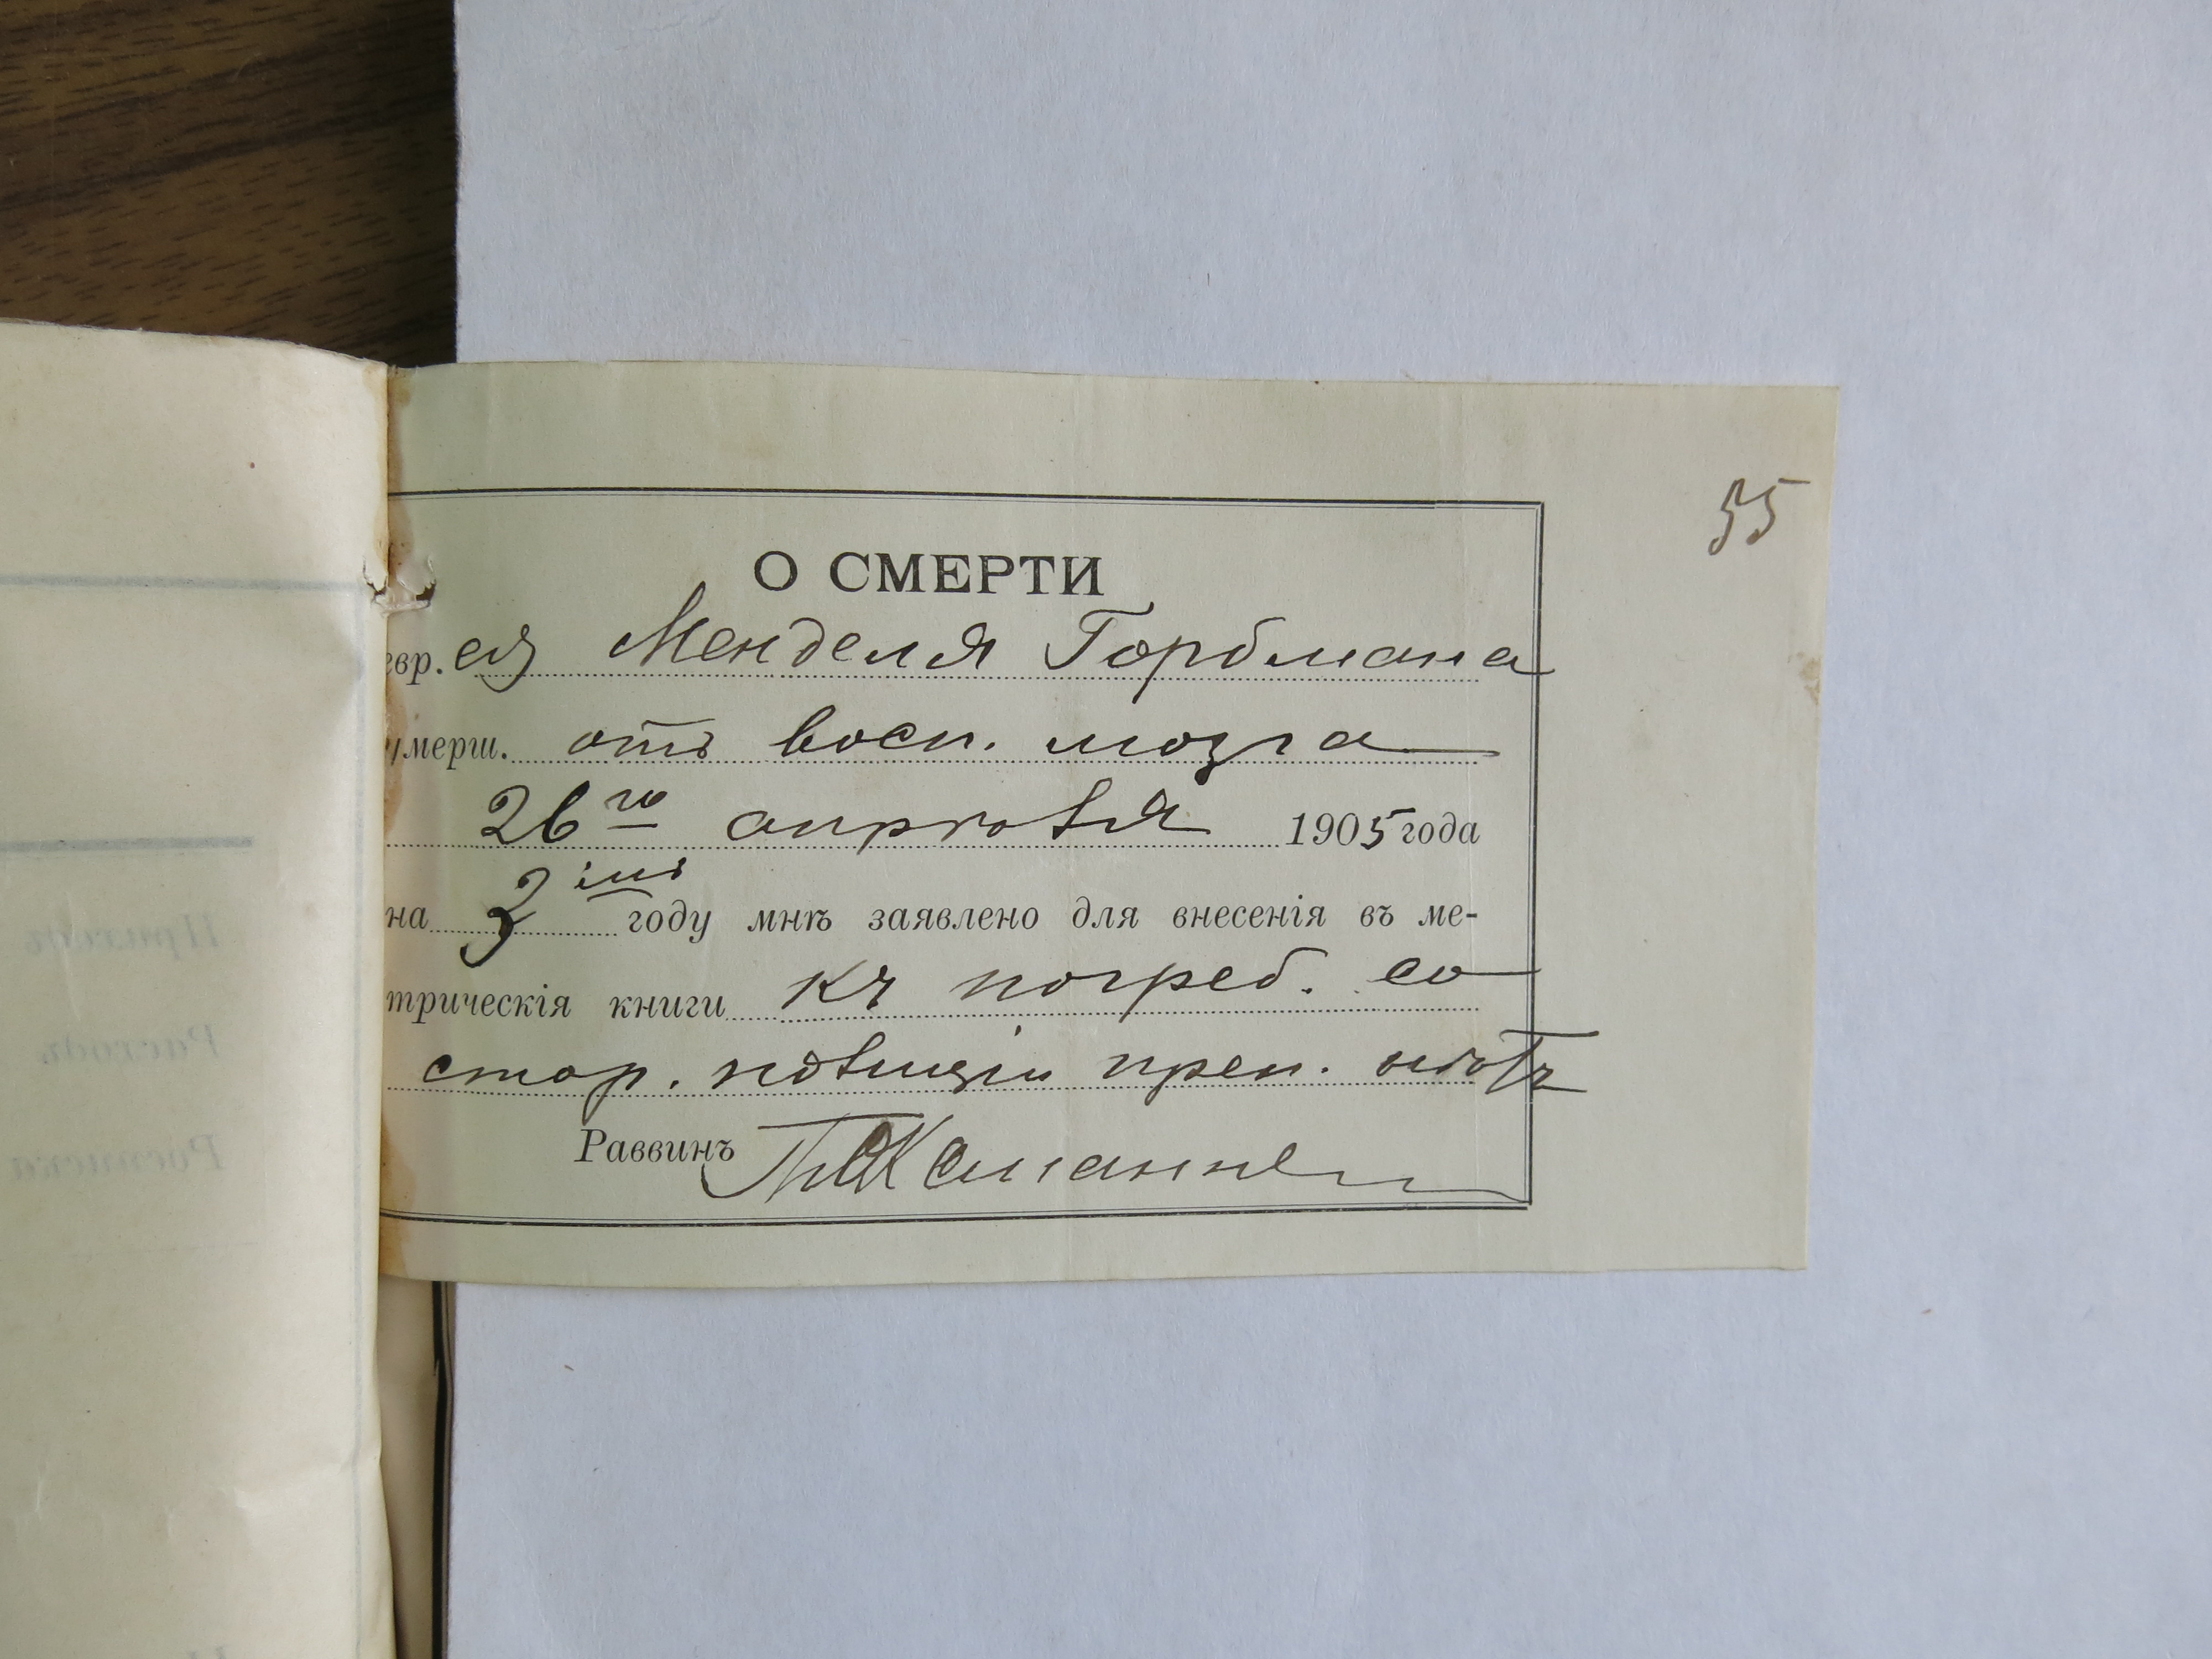 55
О СМЕРТИ
евр. ея Менделя Горбмана
умерш. отъ восп. мозга
26го апрѣля 1905 года
на 3імъ году мнѣ заявлено для внесенія въ ме-
трическія книги къ погреб. со
стор. полиціи преп. нѣтъ
Раввинъ
Приходъ
Расходъ.
Росписка